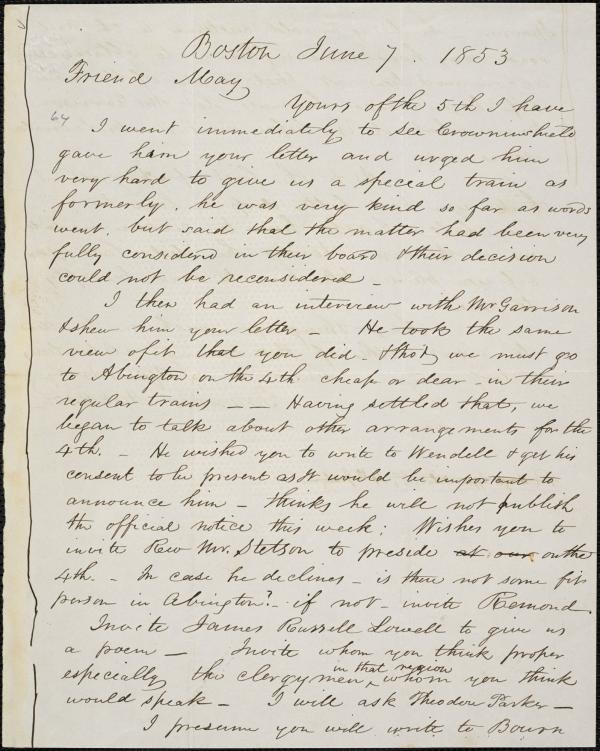 Boston June 7. 1853
Friend May
Yours of the 5th I have
64
I went immediately to see Crowninshield
gave him your letter and urged him
very hard to give us a special train as
formerly. he was very kind so far as words
went, but said that the matter had been very
fully considered in their board & their decision
could not be reconsidered -
I then had an interview with Mr Garrison
& shew him your letter - He took the same
view of it that you did - & that we must go
to Abington on the 4th cheap or dear - in their
regular trains - - Having settled that, we
began to talk about other arrangements for the
4th. - He wished you to write to Wendell & get his
consent to be present as it would be important to
announce him - thinks he will not publish
the official notice this week; Wishes you to
invite Rev Mr. Stetson to preside at our on the
4th. - In case he declines - is there not some fit
person in Abington? - if not - invite Remond.
Invite James Russell Lowell to give us
a poem - Invite whom you think proper
in that region
especially the clergymen, whom you think
would speak - I will ask Theodore Parker -
I presume you will write to Bourn